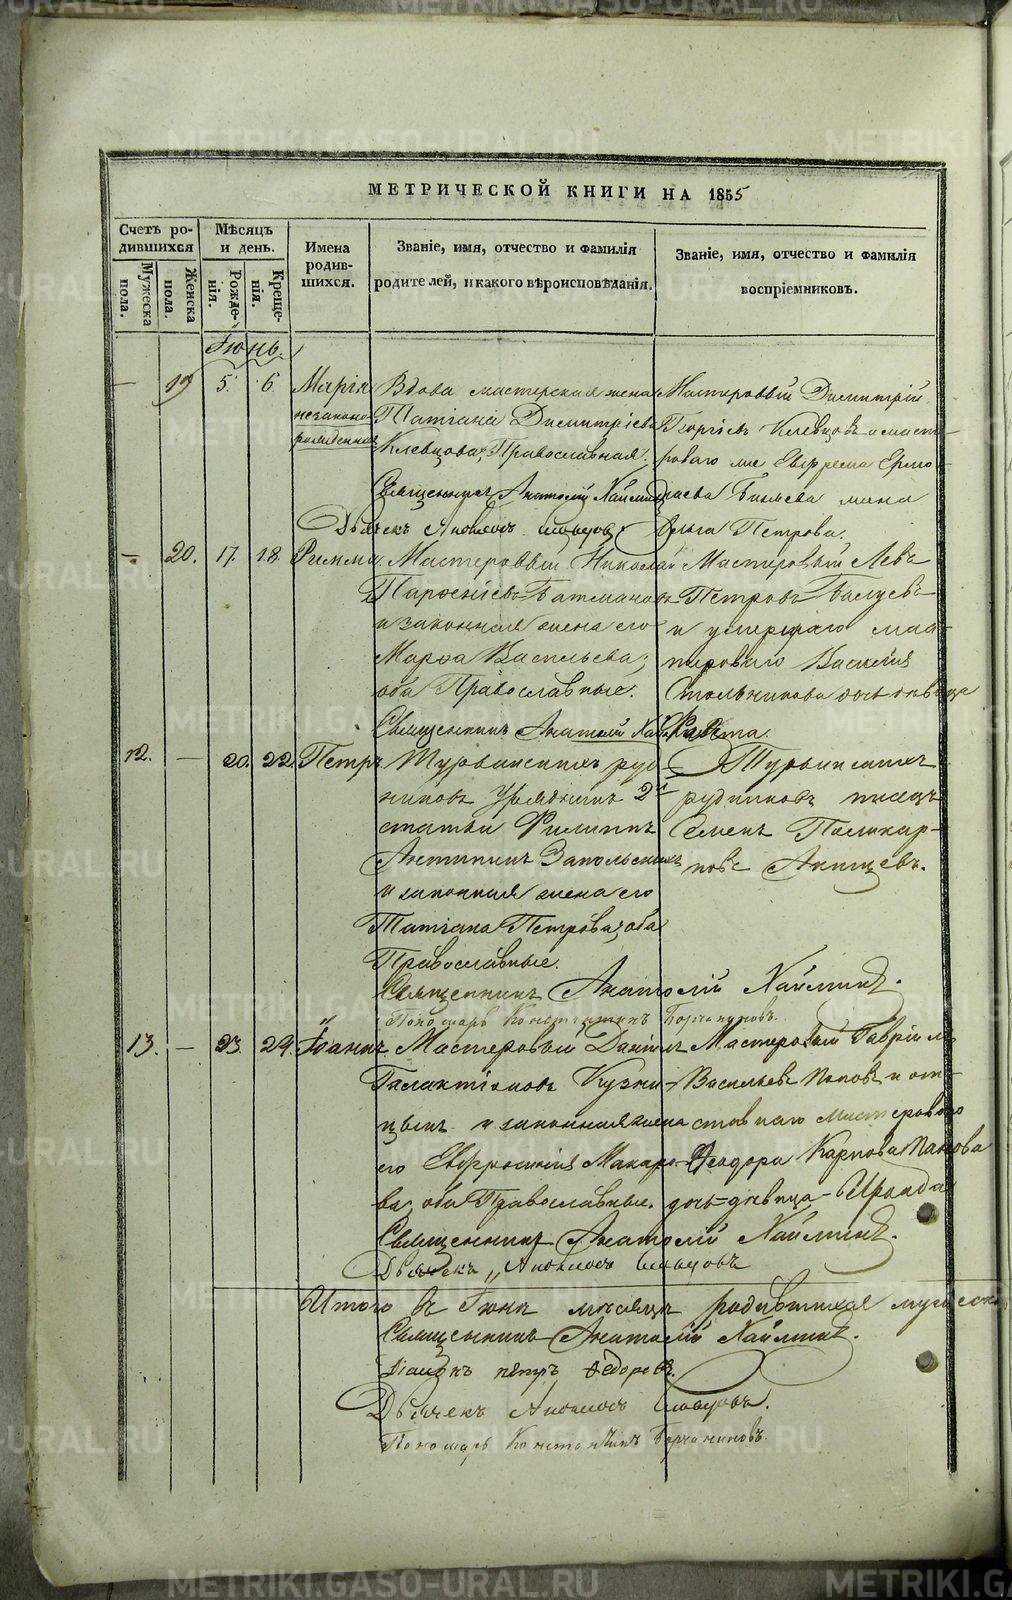 МЕТРИЧЕСКОЙ КНИГИ НА 1855
Счетъ ро-
дившихся
Мужеска
пола.
Женска
пола.
Мѣсяцъ
и день.
Рожде-
нія.
Креще-
нія.
Имена
родив-
шихся.
Званіе, имя, отчество и фамилія
родителей, и какого вѣроисповѣданія.
Званіе, имя, отчество и фамилія
воспріемниковъ.
Іюнь.
— 19 5. 6. Марія
незаконно-
рожденная
Вдова мастерская жена
Татіана Димитріева
Клевцова, Православная.
Священникъ Анатолій
Дьячекъ
Мастеровый Димитрій
Георгіевъ Клевцовъ и масте-
роваго Ефрема Ермо-
лаева жена
Ольга Петрова.
— 20. 17. 18. Римма
Мастеровый Николай
Парѳеніевъ Батмановъ
и законная жена его
Марѳа Васильева,
оба Православные.
Священникъ Анатолій
Мастеровый Левъ
Петровъ
и умершаго мас-
тероваго Василія
Стольникова дочь дѣвица
12. — 20. 22. Петръ
Турьинскихъ руд-
никовъ Урядникъ 2й
статьи Филиппъ
Антипинъ Запольскихъ
и законная жена его
Татіана Петрова, оба
Православные.
Священникъ Анатолій Хайминъ.
Пономарь Константинъ Борчаниновъ.
Турьинскихъ
рудниковъ писецъ
Семенъ Поликар-
повъ
13. — 23. 29. Іоаннъ
Мастеровый Даніилъ
Галактіоновъ Кузни-
цынъ и законная жена
его Евфросинія Макаро-
ва, оба Православные.
Священникъ Анатолій Хайминъ.
Дьячекъ
Мастеровый Гавріилъ
Васильевъ Поповъ и от-
ставнаго мастероваго
Ѳеодора Карпова Панова
дочь-дѣвица - Ираида
Итого въ Іюнѣ мѣсяцѣ родившихся мужеска
Священникъ Анатолій Хайминъ.
Діаконъ Петръ Ѳедоровъ.
Дьячекъ
Пономарь Константинъ Борчаниновъ.
METRIKI.GASO-URAL.RU